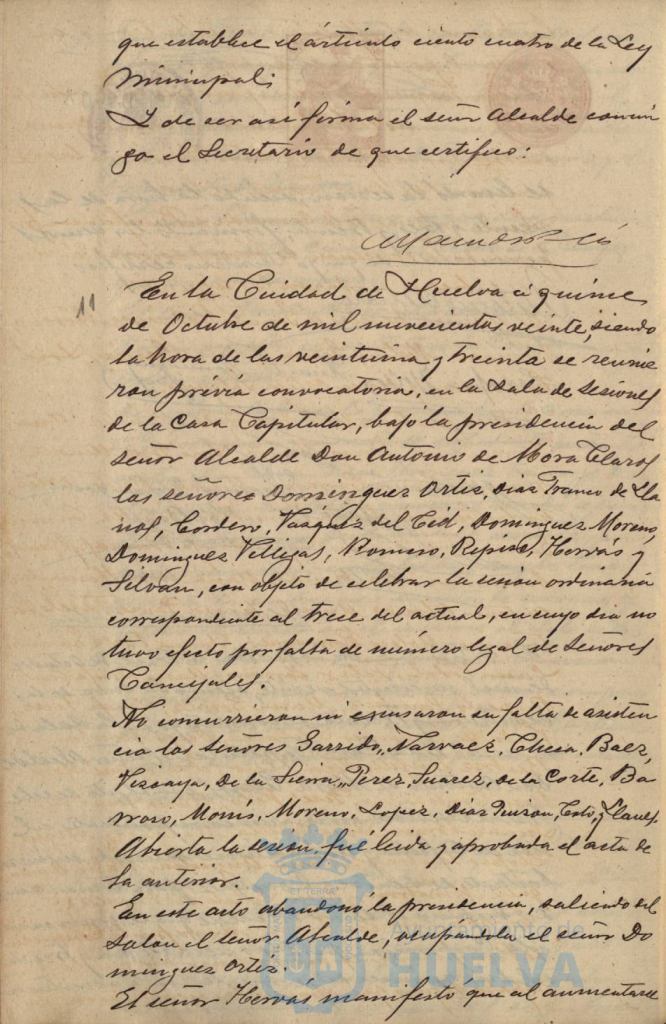 que establece el artículo ciento cuatro de la Ley
Municipal;
Y de ser así firma el señor Alcalde conmi
go el Secretario de que certifico:
11
En la Ciudad de Huelva á quince
de Octubre de mil novecientos veinte, siendo
la hora de las veintiuna y treinta se reunie
ron prévia convocatoria, en la Sala de Sesiones
de la Casa Capitular, bajo la presidencia del
señor Alcalde Don Antonio de Mora Claros
los señores Dominguez Ortiz, Diaz Franco de Lla
nos, Cordero, Vázquez del Cid, Dominguez Moreno,
Dominguez Villegas, Romero, Repiso, Hervás y
Silván, con objeto de celebrar la sesión ordinaria
correspondiente al trece del actual, en cuyo dia no
tuvo efecto por falta de número legal de Señores
Concejales.
No concurrieron ni escusaron su falta de asisten
cia los señores Garrido, Narvaez, Checa, Baez,
Vizcaya, De la Sierra, Perez, Suarez, de la Corte, Ba
rroso, Monís, Moreno, Lopez, Diaz Coto, y Llanes.
Abierta la sesion, fué leida y aprobada el acta de
la anterior.
En este acto abandonó la presidencia, saliendo del
salon el señor Alcalde, ocupándola el señor Do
minguez Ortiz.
El señor Hervás manifestó que al aumentarse
HUELVA